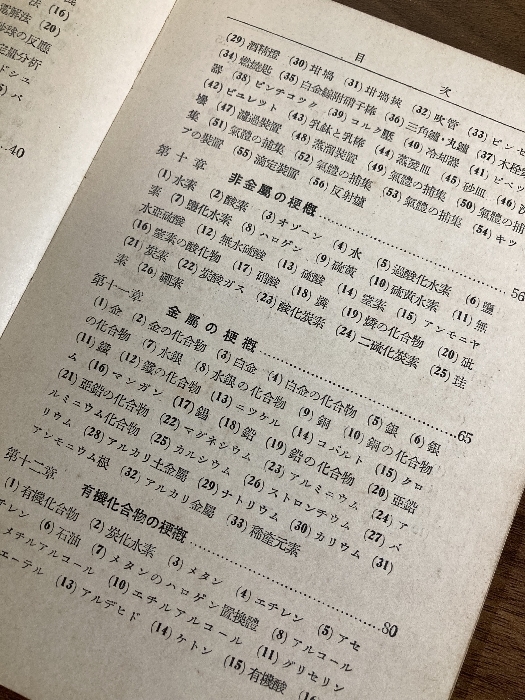 法 (16)
電解法 (20)
の反應
定量分析
ドシュ
(5) バ
…40
目 次
(29) 酒精燈 (30) 坩堝 (31) 坩堝挾 (32) 吹管 (33) ピンセ
(34) 燃燒匙 (35) 白金線附硝子棒 (36) 三角鑪・丸鑪 (37) 木栓穿
器 (38) ピンチコック (39) コルク壓 (40) 冷却器 (41) ピペッ
(42) ビュレット (43) 乳鉢と乳棒 (44) 蒸發皿 (45) 砂皿 (46)
(47) 濾過裝置 (48) 蒸溜裝置 (49) 氣體の捕集 (50) 氣體の捕
集 (51) 氣體の捕集 (52) 氣體の捕集 (53) 氣體の捕集 (54) キッ
プの裝置 (55) 滴定裝置 (56) 反射爐
第十章 非金屬の梗概……56
(1) 水素 (2) 酸素 (3) オゾーン (4) 水 (5) 過酸化水素 (6) 鹽
素 (7) 鹽化水素 (8) ハロゲン (9) 硫黃 (10) 硫黃水素 (11) 無
水亞硫酸 (12) 無水硫酸 (13) 硫酸 (14) 窒素 (15) アンモニヤ
(16) 窒素の酸化物 (17) 硝酸 (18) 燐 (19) 燐の化合物 (20) 砒
(21) 炭素 (22) 炭酸ガス (23) 酸化炭素 (24) 二硫化炭素 (25) 珪
素 (26) 硼素
第十一章 金屬の梗概……65
(1) 金 (2) 金の化合物 (3) 白金 (4) 白金の化合物 (5) 銀 (6) 銀
の化合物 (7) 水銀 (8) 水銀の化合物 (9) 銅 (10) 銅の化合物
(11) 鐵 (12) 鐵の化合物 (13) ニッケル (14) コバルト (15) クロ
ム (16) マンガン (17) 錫 (18) 鉛 (19) 鉛の化合物 (20) 亞鉛
(21) 亞鉛の化合物 (22) マグネシウム (23) アルミニウム (24) ア
ルミニウム化合物 (25) カルシウム (26) ストロンチウム (27) バ
リウム (28) アルカリ土金屬 (29) ナトリウム (30) カリウム (31)
アンモニウム根 (32) アルカリ金屬 (33) 稀產元素
第十二章 有機化合物の梗概……80
(1) 有機化合物 (2) 炭化水素 (3) メタン (4) エチレン (5) アセ
チレン (6) 石油 (7) メタンのハロゲン置換體 (8) アルコール
メチルアルコール (10) エチルアルコール (11) グリセリン
エーテル (13) アルデヒド (14) ケトン (15) 有機酸 (16)